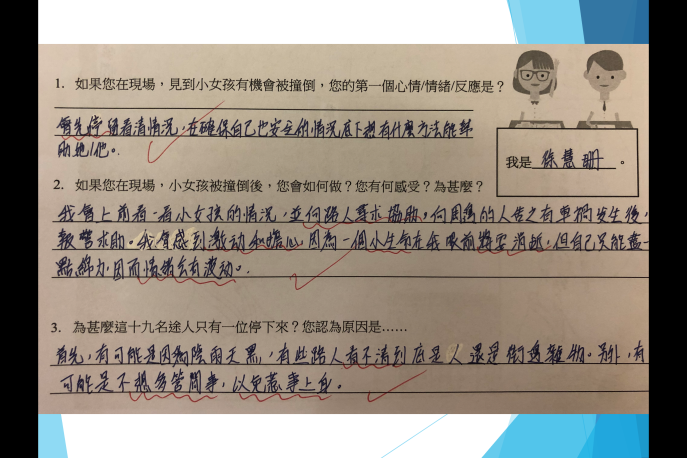 1. 如果您在現場，見到小女孩有機會被撞倒，您的第一個心情/情緒/反應是？
會先停留看清情況，在確保自己也安全的情況底下想有什麼方法能幫
助她/他。
我是 徐慧珊 。
2. 如果您在現場，小女孩被撞倒後，您會如何做？您有何感受？為甚麼？
我會上前看一看小女孩的情況，並向路人尋求協助，向周圍的人告之有車禍發生後，
報警求助。我會感到激动和擔心，因為一個小生命在我眼前將要消逝，但自己只能盡一
點綿力，因而情緒会有波动。
3. 為甚麼這十九名途人只有一位停下來？您認為原因是……
首先，有可能是因為陰雨天黑，有些路人看不清到底是人還是街邊雜物。另外，有
可能是不想多管閒事，以免惹事上身。